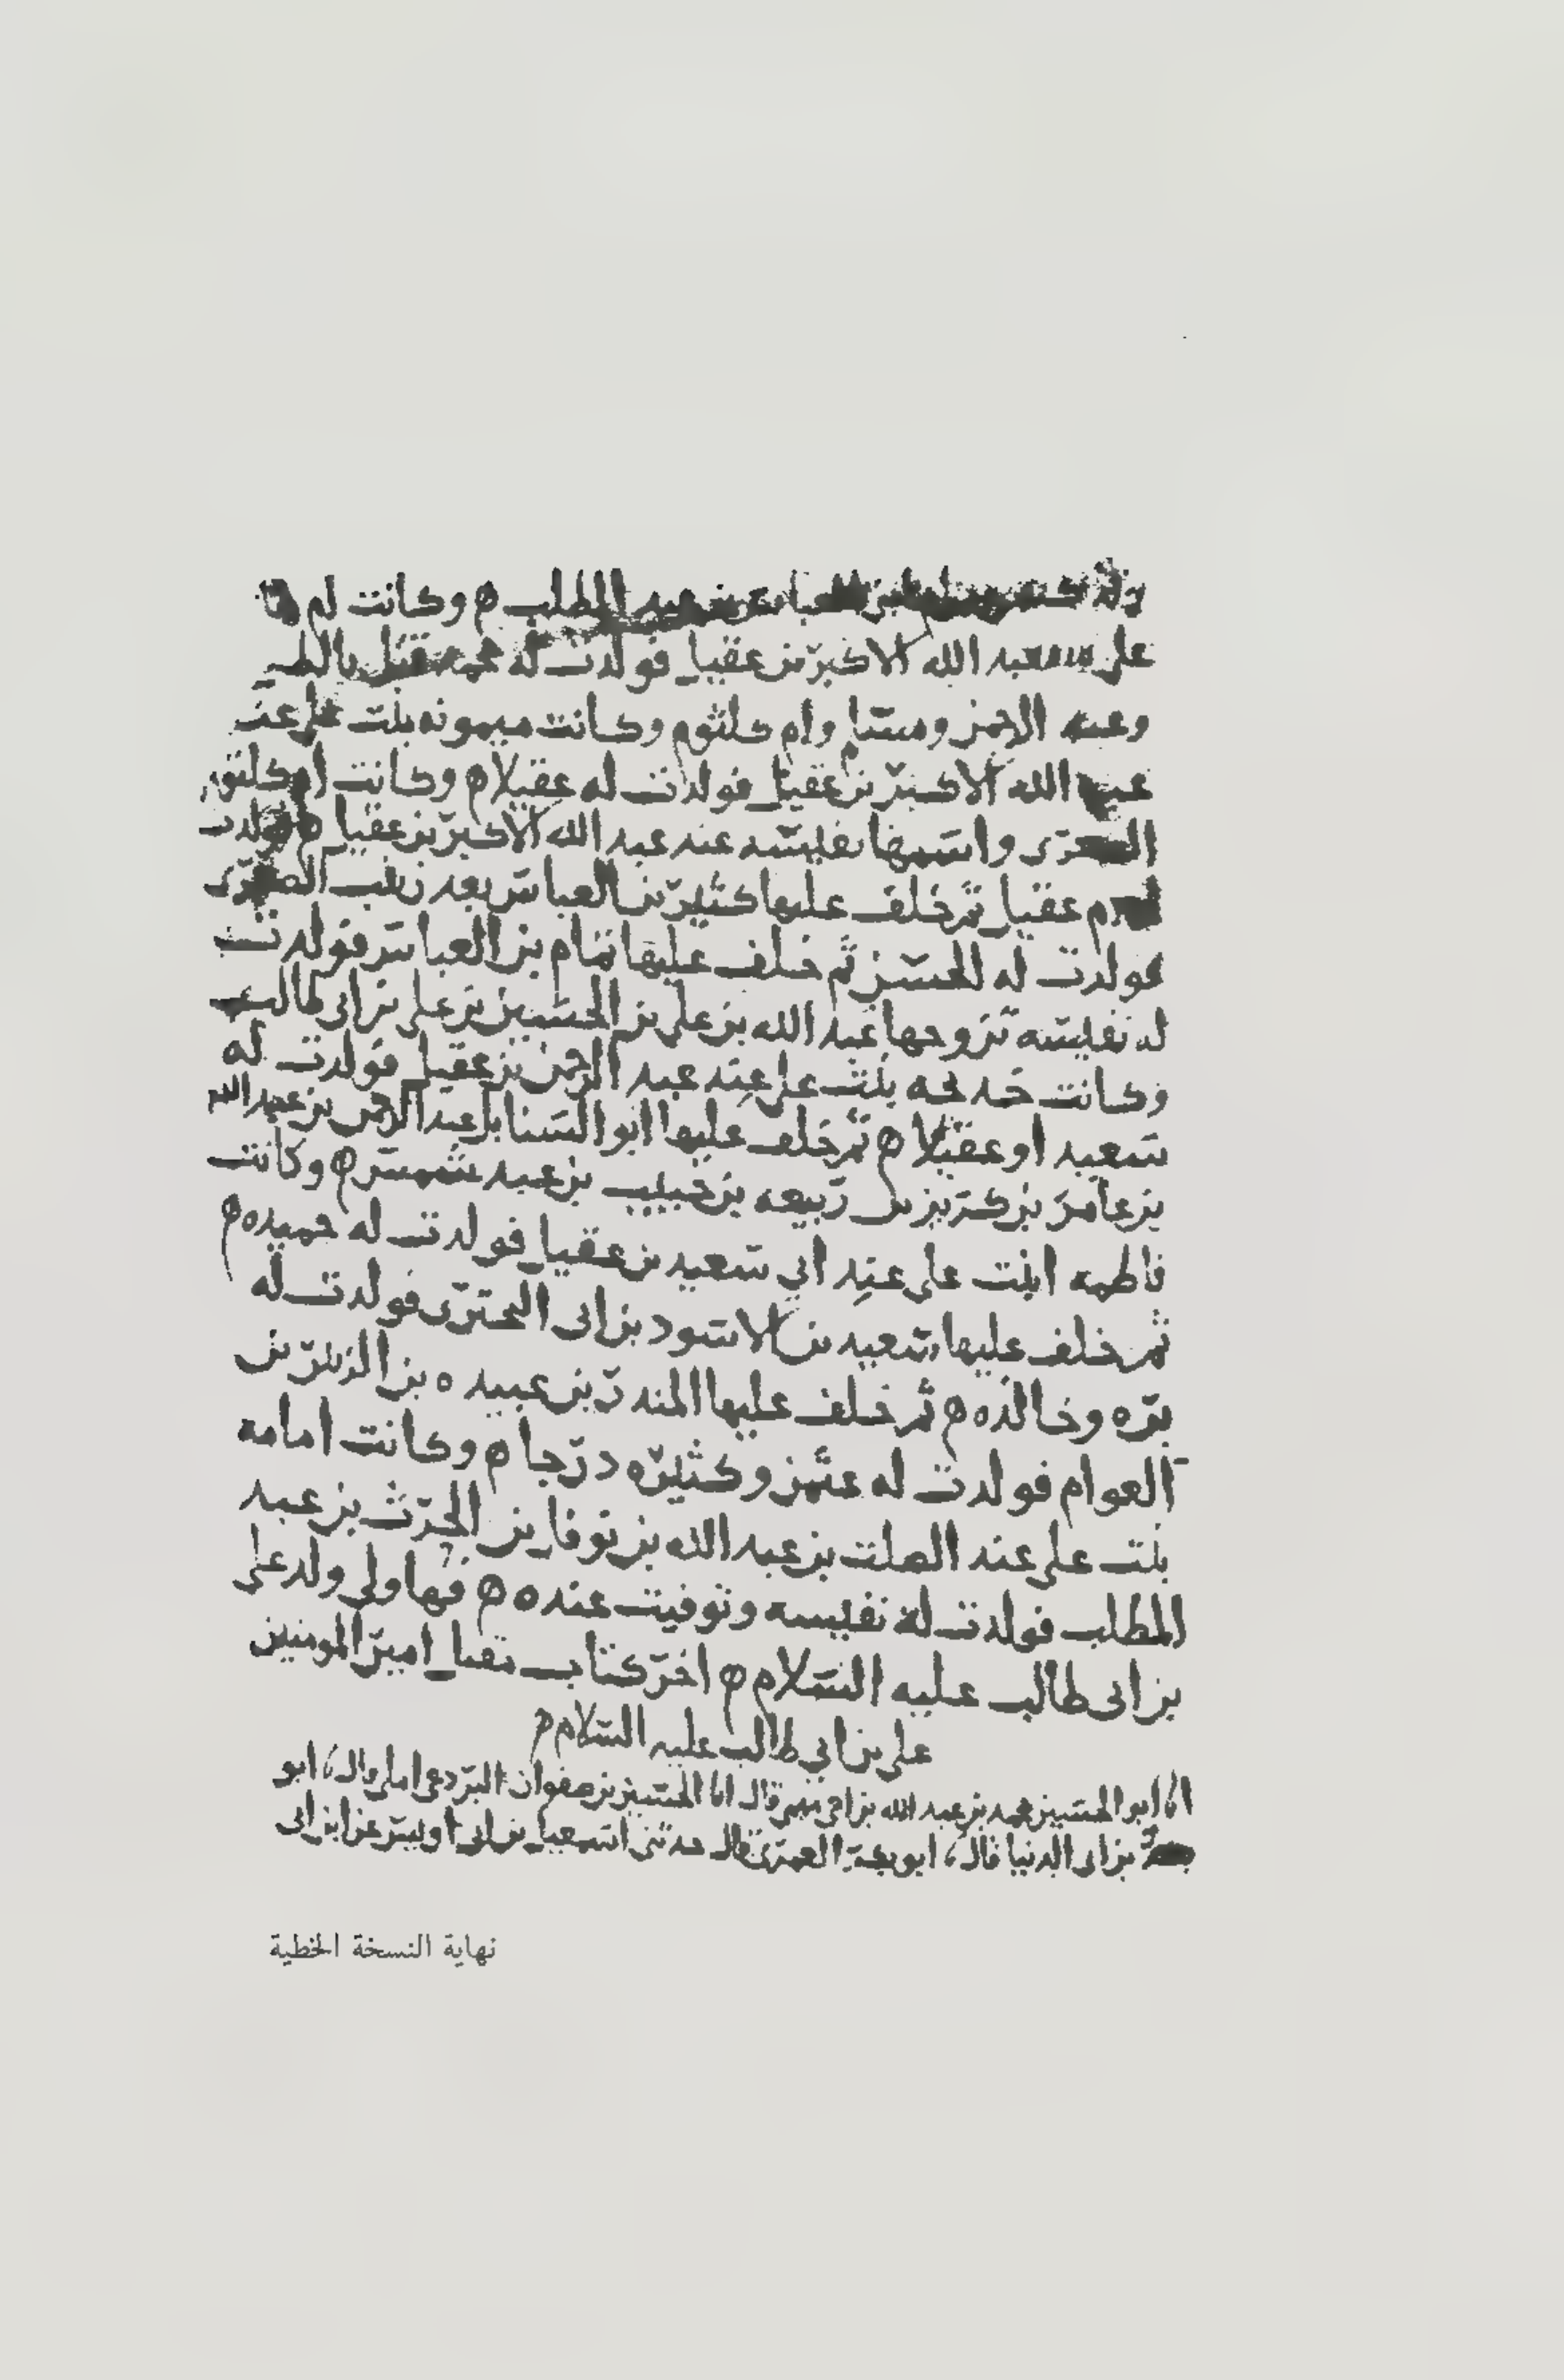 بن العباس بن عبد المطلب ۞ وكانت
على عند عبد الله الاكبر بن عقيل فولدت له محمد قتل بالطف
وعبد الرحمن ومسلم وام كلثوم وكانت ميمونه بنت على عند
عبد الله الاكبر بن عقيل فولدت له عقيلا ۞ وكانت ام كلثوم
الصغرى واسمها نفيسه عند عبد الله الاكبر بن عقيل ۞ فولدت
ام عقيل ثم خلف عليها كثير بن العباس بعد زينب الصغرى
فولدت له الحسن ثم خلف عليها تمام بن العباس فولدت
له نفيسه تزوجها عبد الله بن على بن الحسين بن على بن ابى طالب
وكانت خديجه بنت على عند عبد الرحمن بن عقيل فولدت له
سعيد او عقيلا ۞ ثم خلف عليها ابو السنابل عبد الرحمن بن عبد الله
بن عامر بن كريز بن ربيعه بن حبيب بن عبد شمس ۞ وكانت
فاطمه ابنت على عند ابي سعيد بن عقيل فولدت له حميده ۞
ثم خلف عليها سعيد بن الاسود بن ابى البحترى فولدت له
بره وخالده ۞ ثم خلف عليها المنذر بن عبيده بن الزبير بن
العوام فولدت له عثمن وكثيره درجا ۞ وكانت امامه
بنت على عند الصلت بن عبد الله بن نوفل بن الحرث بن عبد
المطلب فولدت له نفيسه وتوفيت عنده ۞ فهاولى ولد على
بن ابى طالب عليه السلام ۞ اخر كتاب مقتل امير المومنين
على بن ابي طالب عليه السلام ۞
انا ابو الحسين محمد بن عبد الله بن اخي ميمي قال انا الحسين بن صفوان البردعى املى قال، ابو
بكر بن ابى الدنيا قال، ابو العمرى قال حدثنى اسمعيل بن ابى اويس عن ابن ابى
نهاية النسخة الخطية